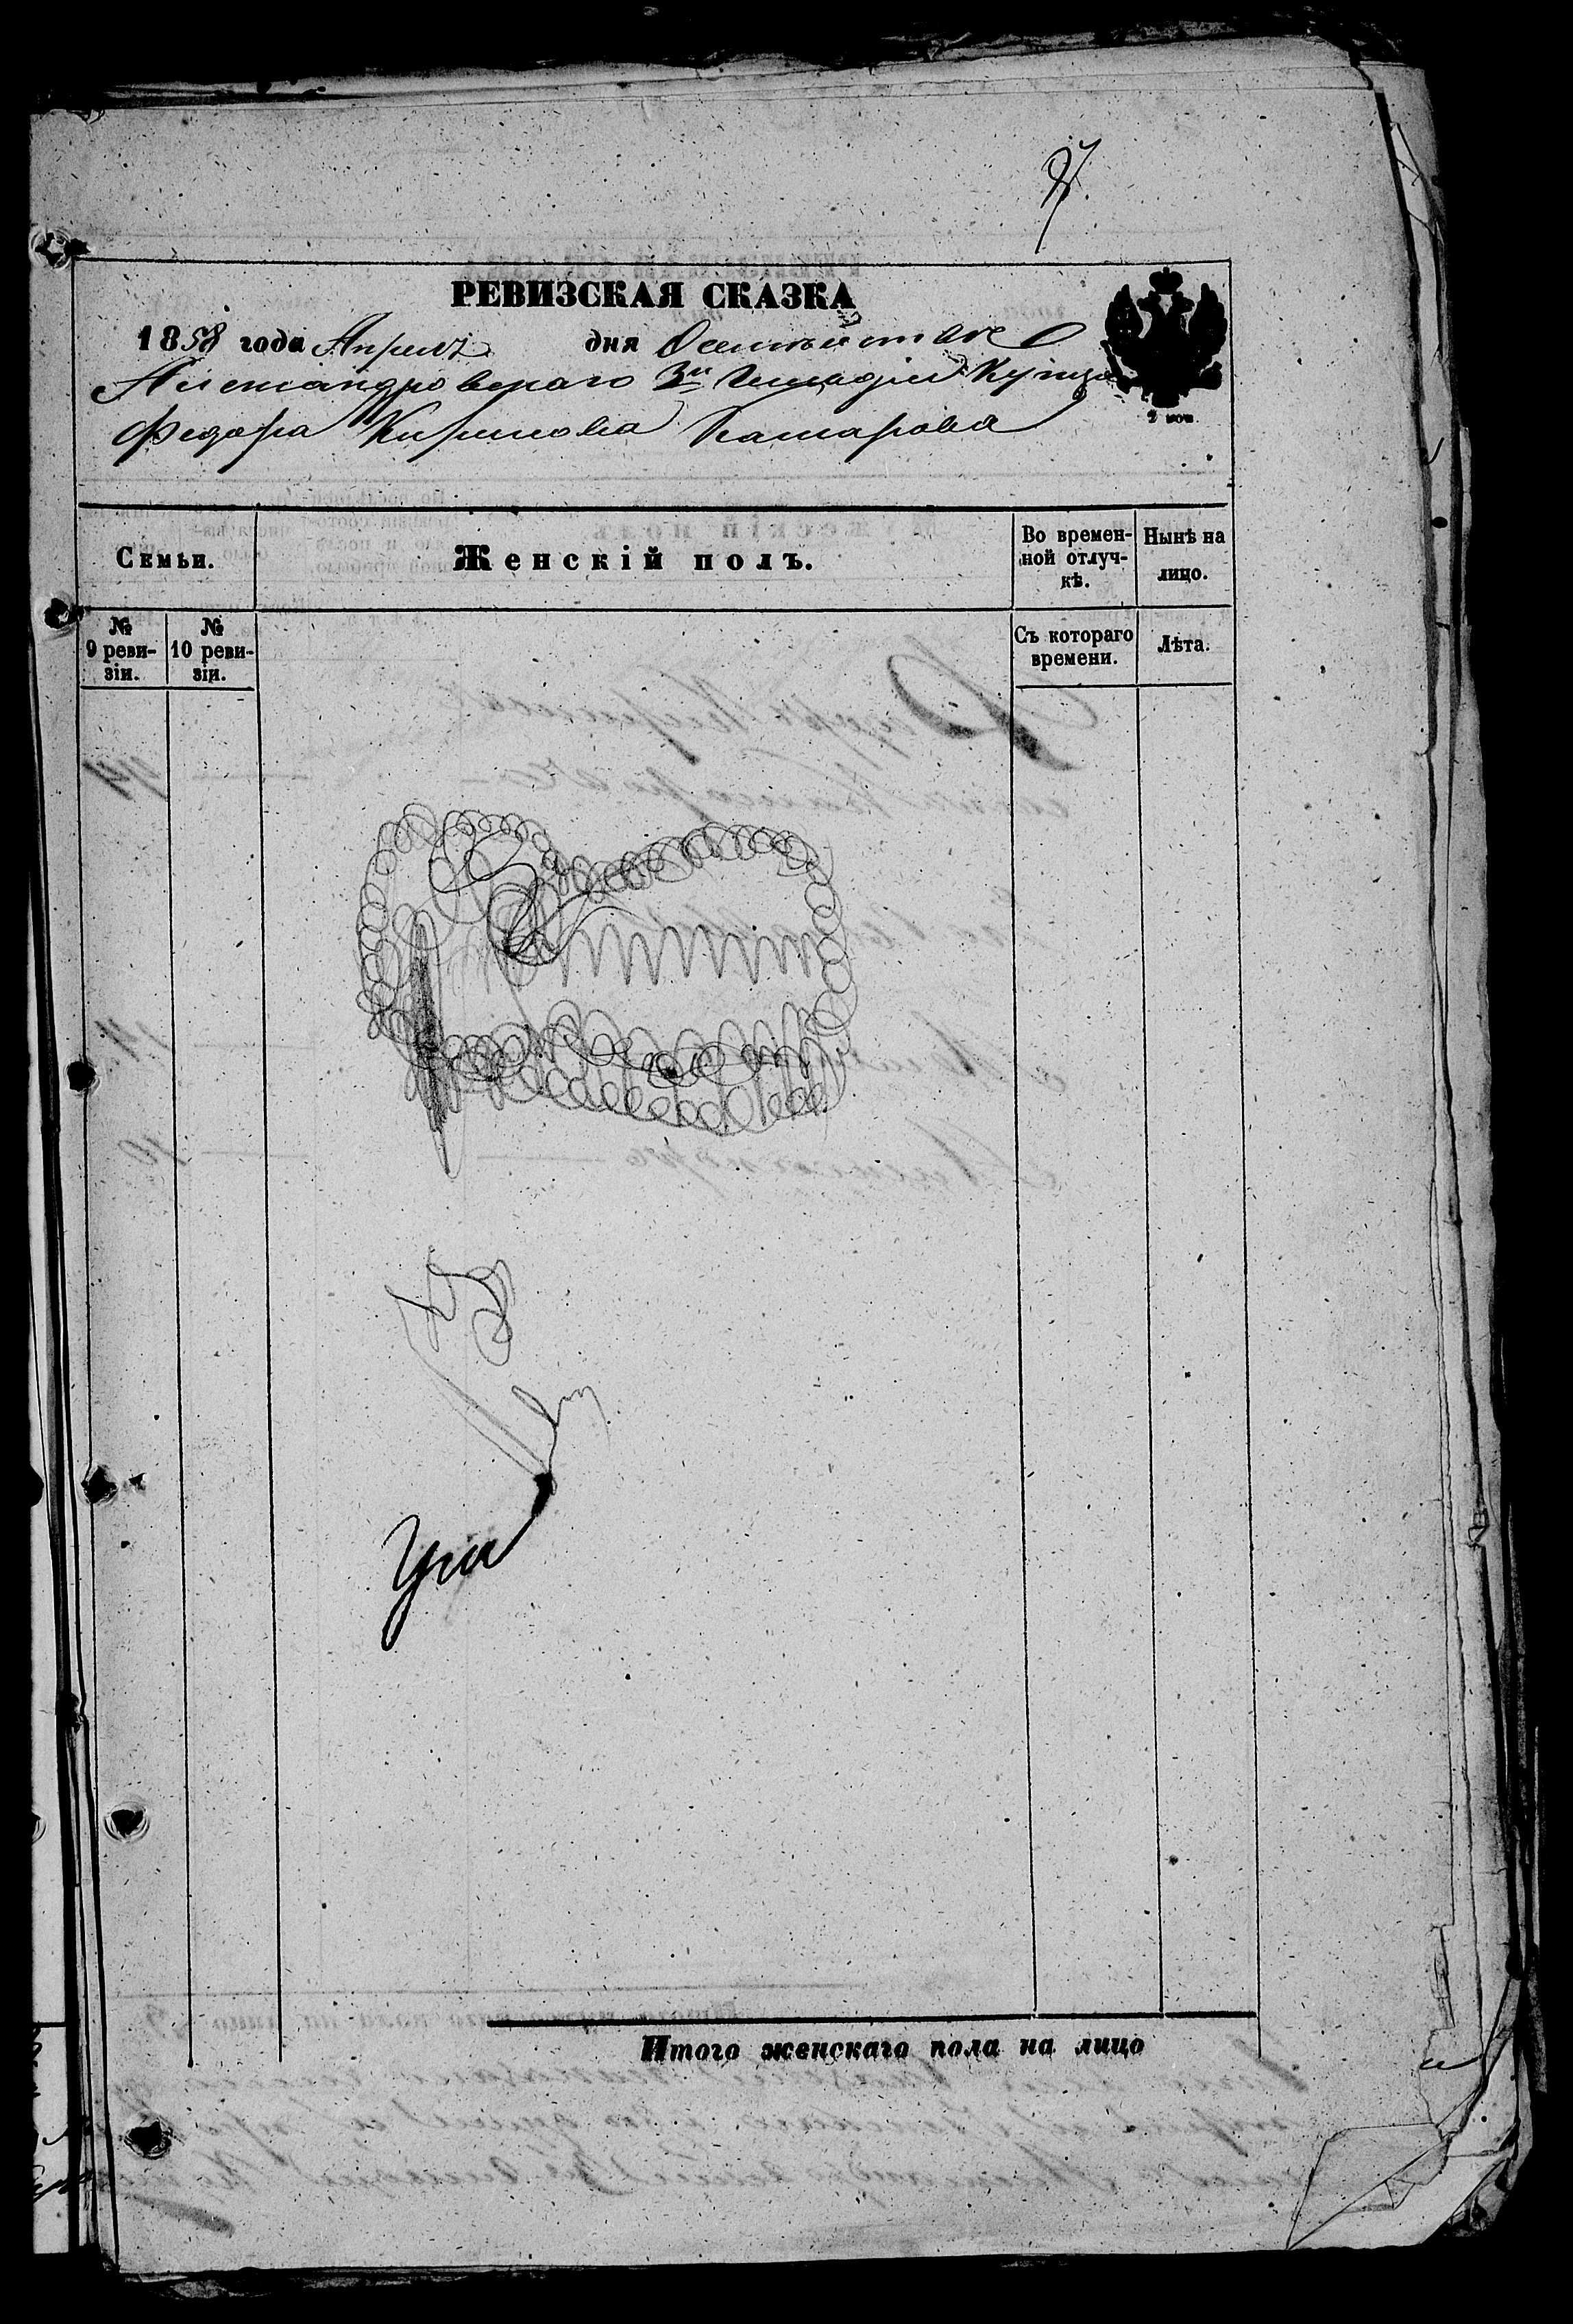 РЕВИЗСКАЯ СКАЗКА
1858 года Апреля дня О семействе
Александровскаго 3й Гильдіи Купца
Федора Кирилова Камарова
2 коп.
Семьи.
Женскій полъ.
Во времен-
ной отлуч-
кѣ.
Нынѣ на
лицо.
№
9 реви-
зіи.
№
10 реви-
зіи.
Съ котораго
времени.
Лѣта.
Итого женскаго пола на лицо